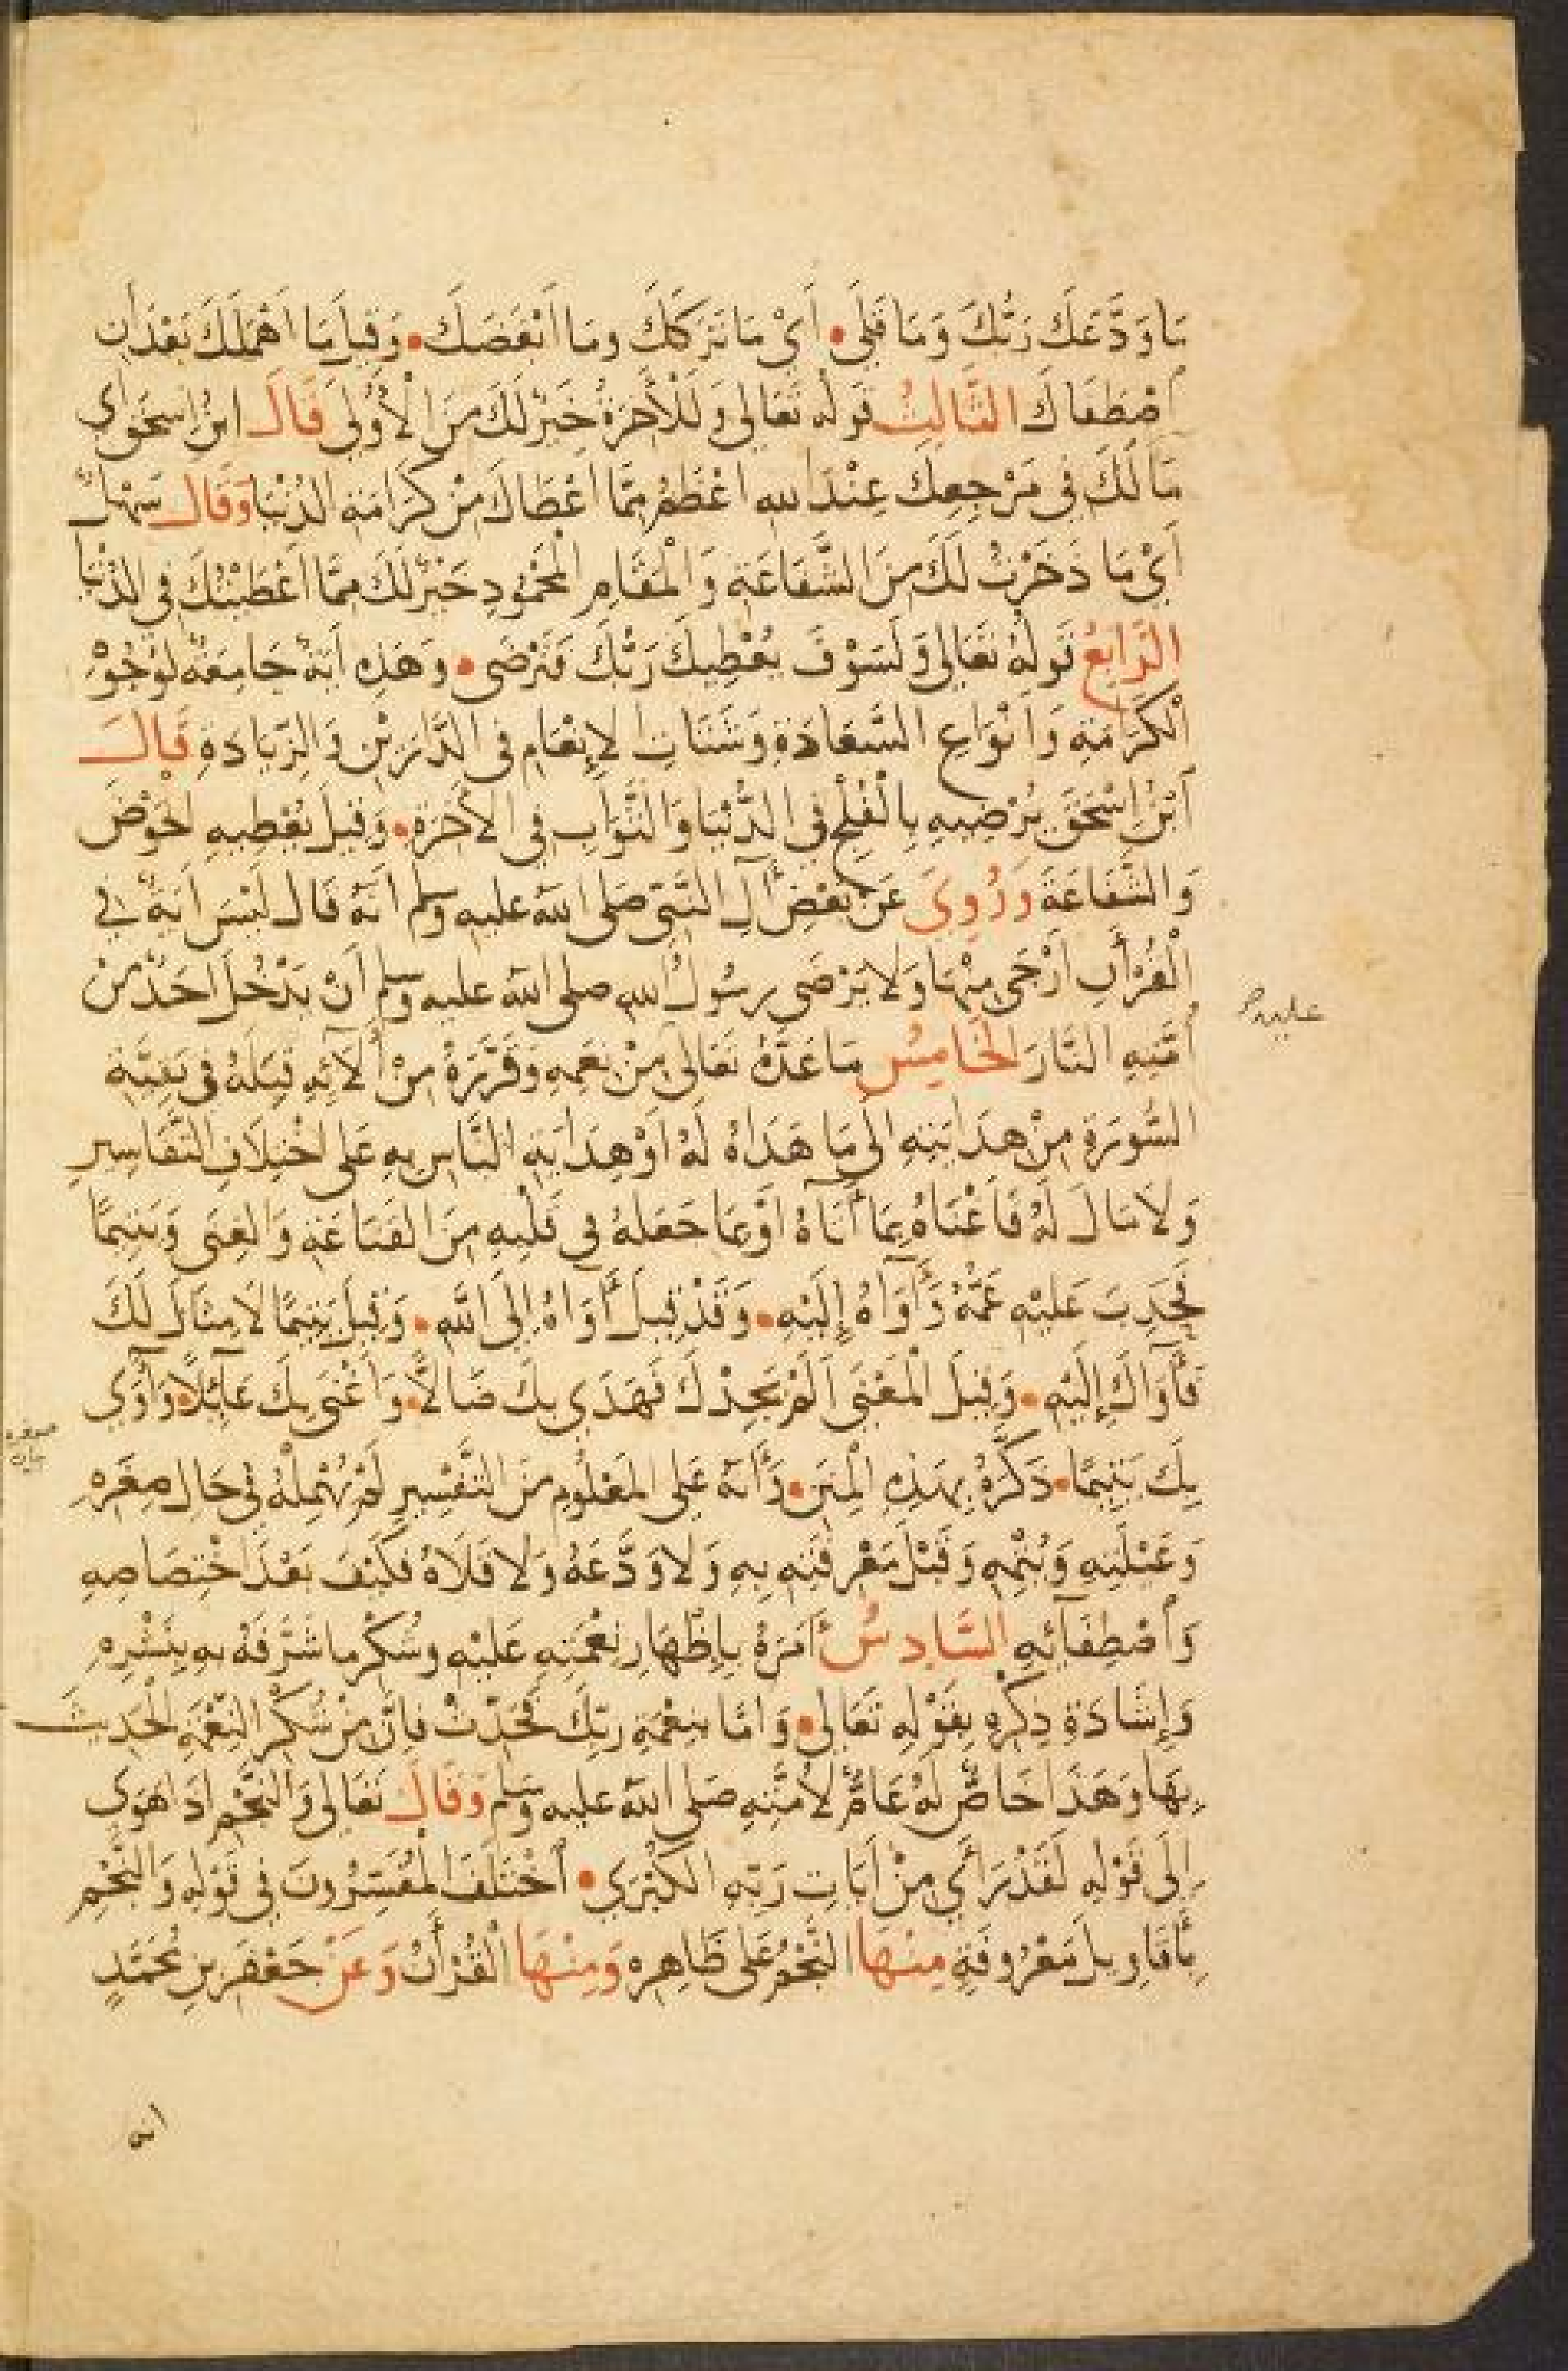 مَا وَدَّعَكَ رَبُّكَ وَمَا قَلَى • أَيْ مَا تَرَكَكَ وَمَا أَبْغَضَكَ • وَقِيلَ مَا أَهْمَلَكَ بَعْدَ أَنِ
اصْطَفَاكَ الثَّالِثُ قَولُه تَعَالى وَلَلْأَخِرَةُ خَيْرٌ لَكَ مِنَ الْأُوْلَى قَالَ ابْنُ اِسحَقَ اي
مَالَكَ في مَرْجِعِكَ عِنْدَ اللهِ اَعْظَمُ مِمَّا اَعْطَاكَ مِنْ كَرَامَةِ الدُّنْيَا وَقَالَ سَهْلٌ
أَيْ مَا ذَخَرْتُ لَكَ مِنَ الشَّفَاعَةِ وَالْمَقَامِ الْمَحْمُودِ خَيْرٌ لَكَ مِمَّا اَعْطَيْتُكَ فِي الدُّنْيَا
الرَّابِعُ قَولُهُ تَعَالى وَلَسَوْفَ يُعْطِيكَ رَبُّكَ فَتَرْضَى • وَهَذِهِ اَيَةٌ جَامِعَةٌ لِوُجُوْهِ
الْكَرَامَةِ وَأَنْوَاعِ السَّعَادَةِ وَشَتَاتِ الإِنْعَامِ فِي الدَّارَيْنِ وَالزِّيَادَةِ قَالَ
أبْنُ إِسْحَقَ يُرْضِيهِ بِالْفُلْجِ فِي الدُّنْيَا وَالثَّوَابِ فِي الأَخِرَةِ • وَقِيلَ يُعْطِيهِ الْحَوْضَ
وَالشَّفَاعَةَ وَرُوِيَ عَنْ بَعْضِ آلِ النَّبِيِّ صَلى الله عليه وسلم أَنَّهُ قَالَ لَيْسَ اَيَةٌ في
الْقُرْأَنِ أَرْجَى مِنْهَا وَلَا يَرْضَى رسُولُ اللهِ صلى الله عليه وسلم اَنْ يَدْخُلَ اَحَدٌ مِنْ
أُمَّتِهِ النَّارَ الْخَامِسُ مَا عَدَّهُ تَعَالَى مِنْ نِعَمِهِ وَقَرَّرَهُ مِنْ أَلَائِهِ قِبَلَهُ فِي بَقِيَّةِ
عليه
السُّورَةِ مِنْ هِدَايَتِهِ إِلَى مَا هَدَاهُ لَهُ اَوْ هِدَايَةِ النَّاسِ بِهِ عَلَى اخْتِلَافِ التَّفَاسِيرِ
وَلَا مَالَ لَهُ فَأَغْنَاهُ بِمَا أَتَاهُ اَوْ بِمَا جَعَلَهُ فِي قَلْبِهِ مِنَ الْقَنَاعَةِ وَالْغِنَى وَيَتِيمًا
فَحَدِبَ عَلَيْهِ عَمُّهُ وَآوَاهُ إِلَيْهِ • وَقَدْ قِيلَ آوَاهُ إِلَى اللَّهِ • وَقِيلَ يَتِيمًا لَا مِثَالَ لَكَ
فَأَوَاكَ إِلَيْهِ • وَقِيلَ الْمَعْنَى اَلَمْ يَجِدْكَ فَهَدَى بِكَ ضَالًّا • وَاَغْنَى بِكَ عَآئِلًا • وَأَوَى
بِكَ يَتِيمًا • ذَكَّرَهُ بِهَذِهِ الْمِنَنِ • وَأَنَّهُ عَلَى المَعْلُومِ مِنَ التَّفْسِيرِ لَمْ يُهْمِلْهُ فِي حَالِ صِغَرِهِ
وَعَيْلَتِهِ وَيُتْمِهِ وَقَبْلَ مَعْرِفَتِهِ بِهِ وَلَا وَدَّعَهُ وَلَا قَلَاهُ فَكَيْفَ بَعْدَ اخْتِصَاصِهِ
وَاصْطِفَآئِهِ السَّادِسُ أَمَرَهُ بِإِظْهَارِ نِعْمَتِهِ عَلَيْهِ وَشُكْرِ مَا شَرَّفَهُ بِهِ بِنَشْرِهِ
وَإِشَادَةِ ذِكْرِهِ بِقَوْلِهِ تَعَالَى • وَأَمَّا بِنِعْمَةِ رَبِّكَ فَحَدِّثْ فَإِنَّ مِنْ شُكْرِ النِّعْمَةِ الْحَدِيثَ
بِهَا وَهَذَا خَاصٌّ لَهُ عَامٌّ لِأُمَّتِهِ صَلى الله عليه وسلم وَقَالَ تَعَالى وَالنَّجْمِ اِذَا هَوَى
إِلَى قَوْلِهِ لَقَدْ رَأَى مِنْ اَيَاتِ رَبِّهِ الْكُبْرَى • اخْتَلَفَ الْمُفَسِّرُونَ فِي قَوْلِهِ وَالنَّجْمِ
بِأَقَاوِيلَ مَعْرُوفَةٍ مِنْهَا النَّجْمُ عَلَى ظَاهِرِهِ وَمِنْهَا الْقُرْأَنُ وَعَنْ جَعْفَرِ بْنِ مُحَمَّدٍ
انه